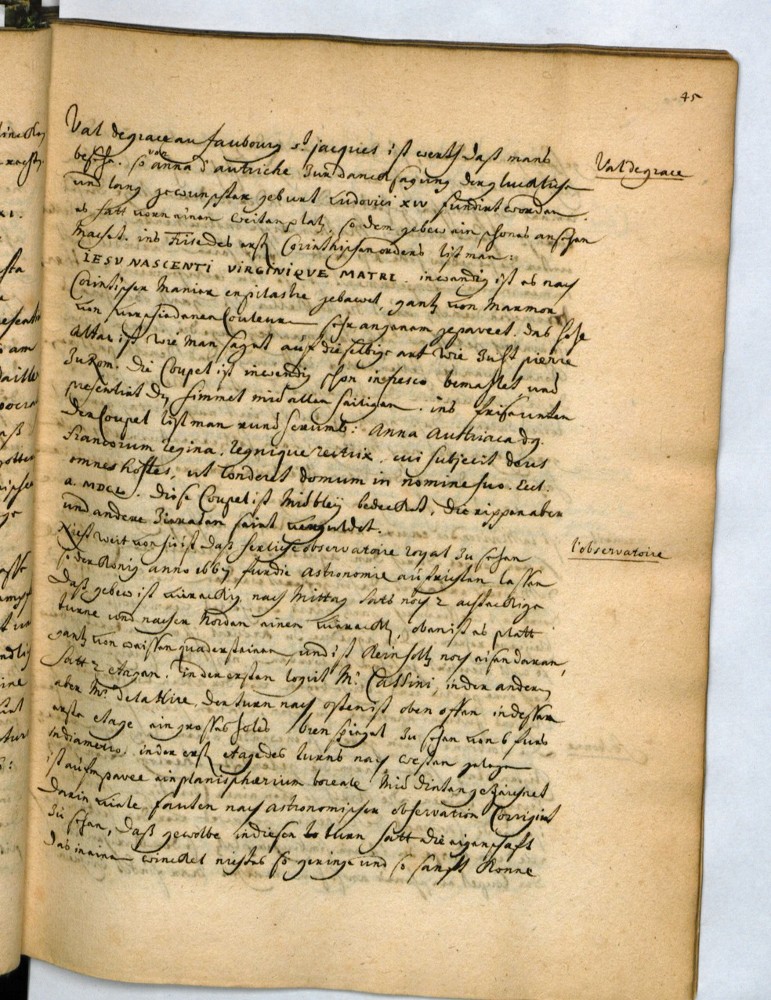 45
Val de grace au faubourg st. jacques ist werth daß mans
Val de grace
besihe. so von anna d'autriche zur dancksagung der glucklich
und lang gewunschten geburt Ludovici XIV fundirt worden.
es hatt vorn einen weiten platz, so dem gebew ein schones ansehen
machet. ins frise des erst Corinthischen ordens list man:
IESU NASCENTI VIRGINIQUE MATRI. inwendig ist es nach
Corintischer Manier en pilastre gebawet, gantz von Marmor
von verschiedenen Couleuren sehr angenem gepaveet. das hohe
Altar ist wie man sagt auf dieselbige art wie zu St pierre
zu Rom. die Coupel ist inwendig schon in fresco bemahlet und
presentirt den himmel mid allen heiligen. ins
der Coupel list man rund herumb: Anna Austriaca d.g.
francorum regina, regnique rectrix, cui subjecit deus
omnes hostes, ut conderet domum in nomine suo. Ecct.
a. MDCL. diese Coupel ist mid bley bedeckt, die rippen aber
und andere zieraden seint verguldet.
Nicht weit von hir ist daß herliche observatoire royal zu sehen
l'observatoire
so der König anno 1667 fur die Astronomie aufrichten lassen
Daß gebew ist viereckig nach Mittag hats noch 2 achteckige
turne und nachen Norden einen viereckt, oben ist es platt
gantz von weissen quadersteinen, und ist kein holtz noch eisen daran,
hatt 2 etagen. in der ersten logirt Mr. Cassini, in der andern
aber Mr. de la Hire, der turn nach osten ist oben offen in dessen
ersten etage ein grosses holes bren spiegel zu sehen von 6 fus
in diametro, in der erst etage des turns nach westen gelegen
ist aufm pavee ein planisphærium boreale mid dinten gezeichnet
darin viele fauten nach astronomischer observation Corrigirt
zu sehen, daß gewolbe in diesen turn hatt die eigenschaft
das in einen winckel nichtes so geringe und so sanft konne